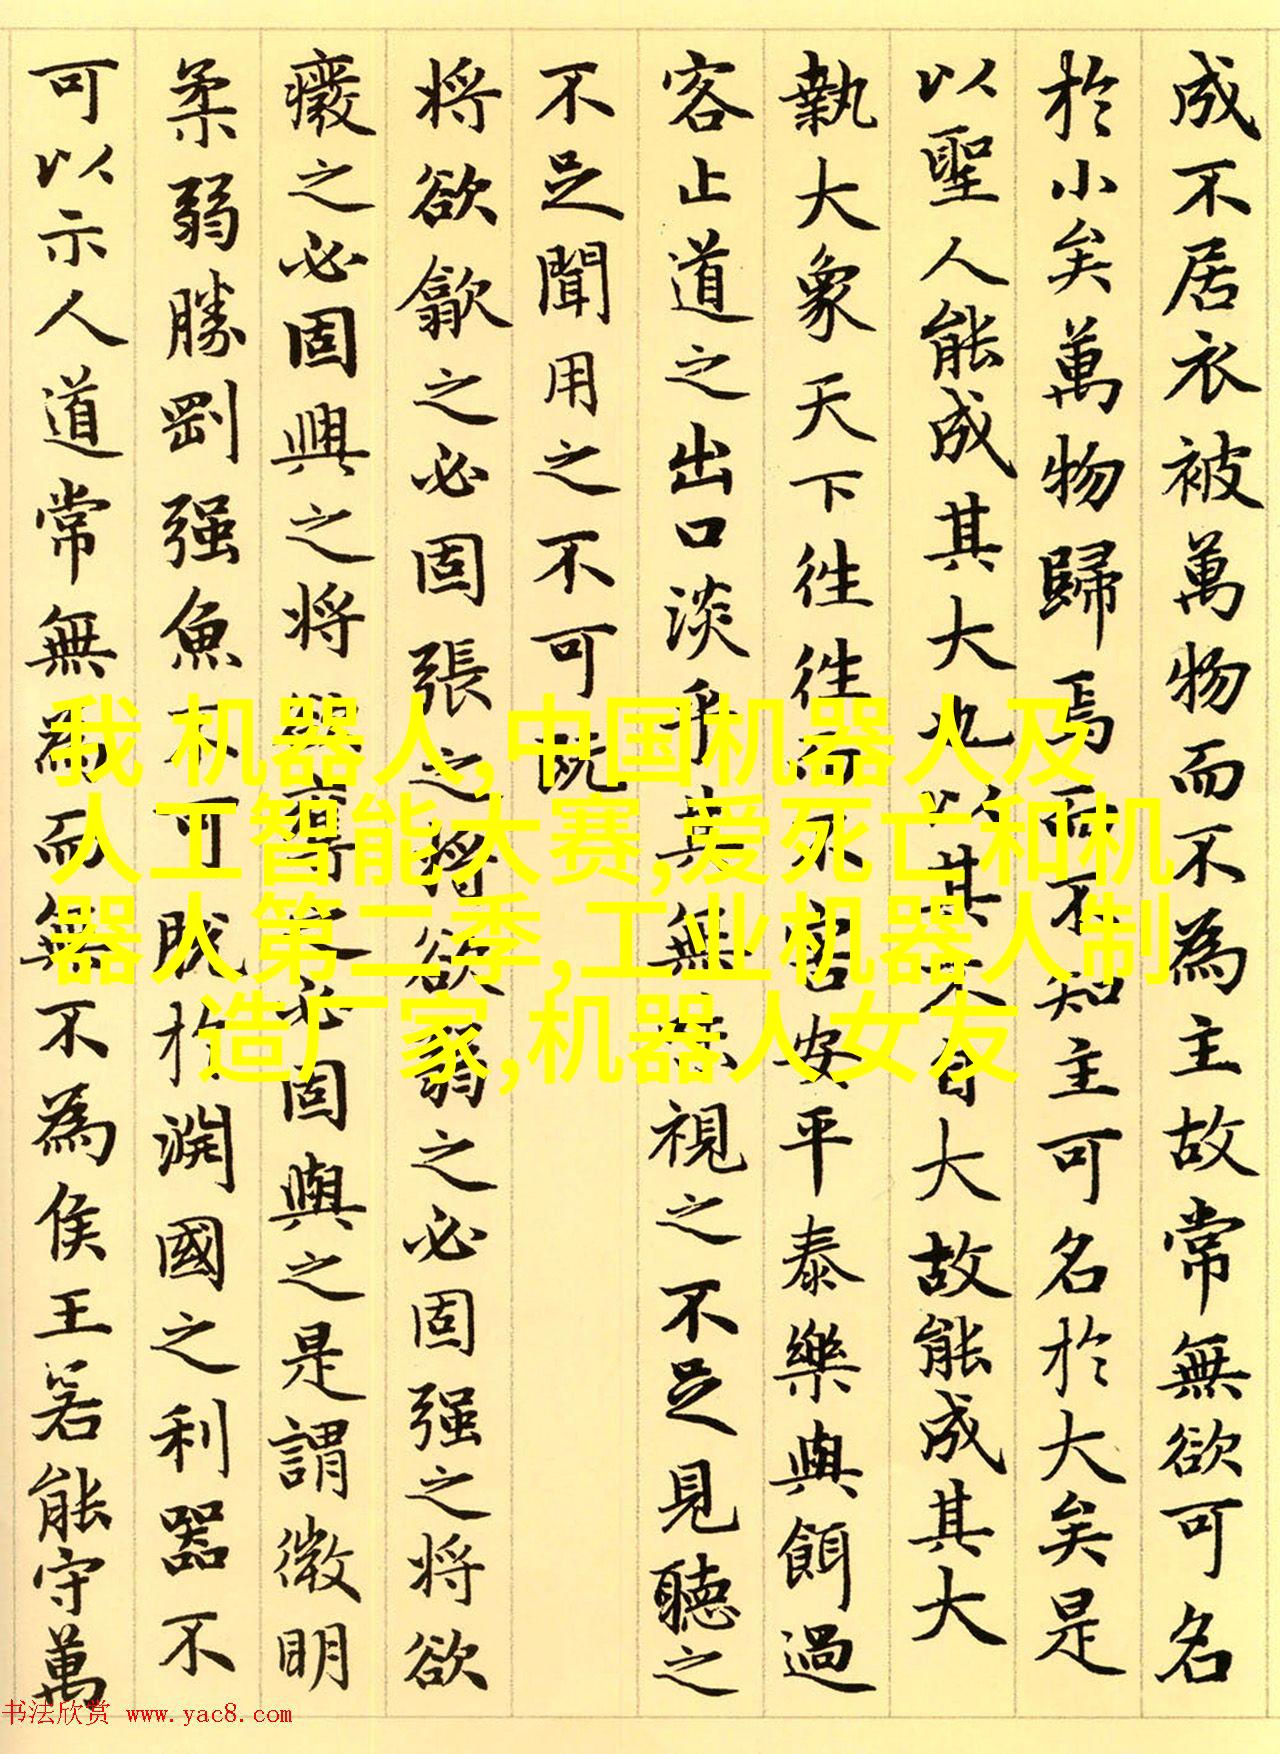 成不居衣被萬物而不為主故常無欲可名
於小矣萬物歸焉而不知主可名於大矣是
以聖人能成其大也以其不自大故能成其大
執大象天下往往而不害安平泰樂與餌過
客止道之出口淡乎其無味視之不足見聽之
不足聞用之不可既
將欲歙之必固張之將欲弱之必固强之將欲
癈之必固興之將欲奪之必固與之是謂微明
柔弱勝剛强魚不可脫於淵國之利器不
可以示人道常無為而無不為侯王若能守萬
我 机器人,中国机器人及
人工智能大赛,爱死亡和机
器人第二季,工业机器人制
造厂家,机器人女友
书法欣赏 www.yac8.com